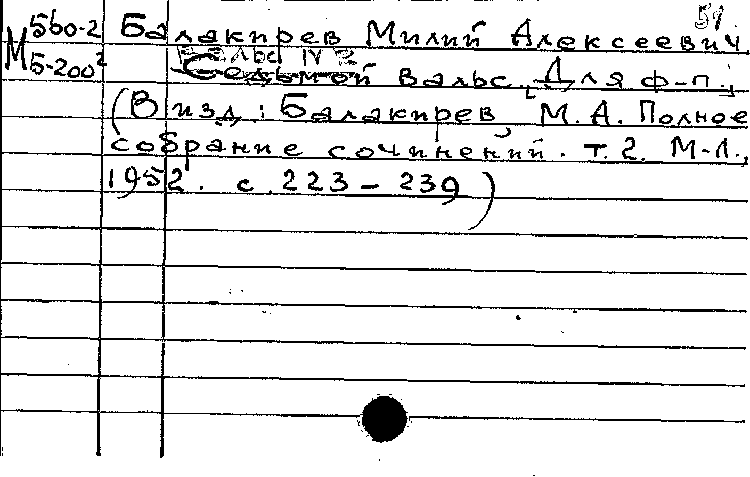 51
М 560-2 Балакирев Милий Алексеевич
5-200² Вальс IV 2
Седьмой вальс. [Для ф-п.]
(В изд.: Балакирев, М.А. Полное
собрание сочинений. т.2. М-Л.,
1952. с.223-239)